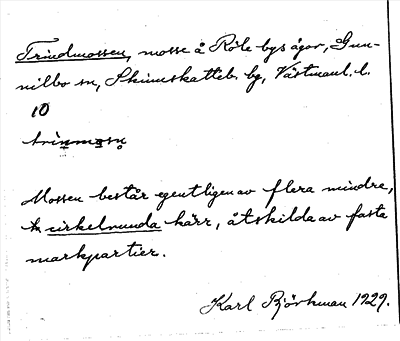 Trindmossen, mosse å Röle bys ägor, Gun-
nilbo sn, Skinnskatteb. bg, Västmanl. l.
10
trinmosn
Mossen består egentligen av flera mindre,
cirkelrunda kärr, åtskilda av fasta
markpartier.
Karl Björkman 1929.